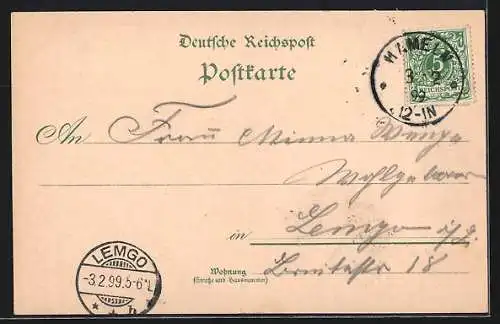 Deutsche Reichspost
Postkarte
HAMELN
3 2
99
12-1N
5
REICHSPOST
An Frau Minna Wenze
Wohlgeboren
in Lemgo i/L.
Wohnung Breitestr 18
(Straße und Hausnummer)
LEMGO
-3.2.99.5-6